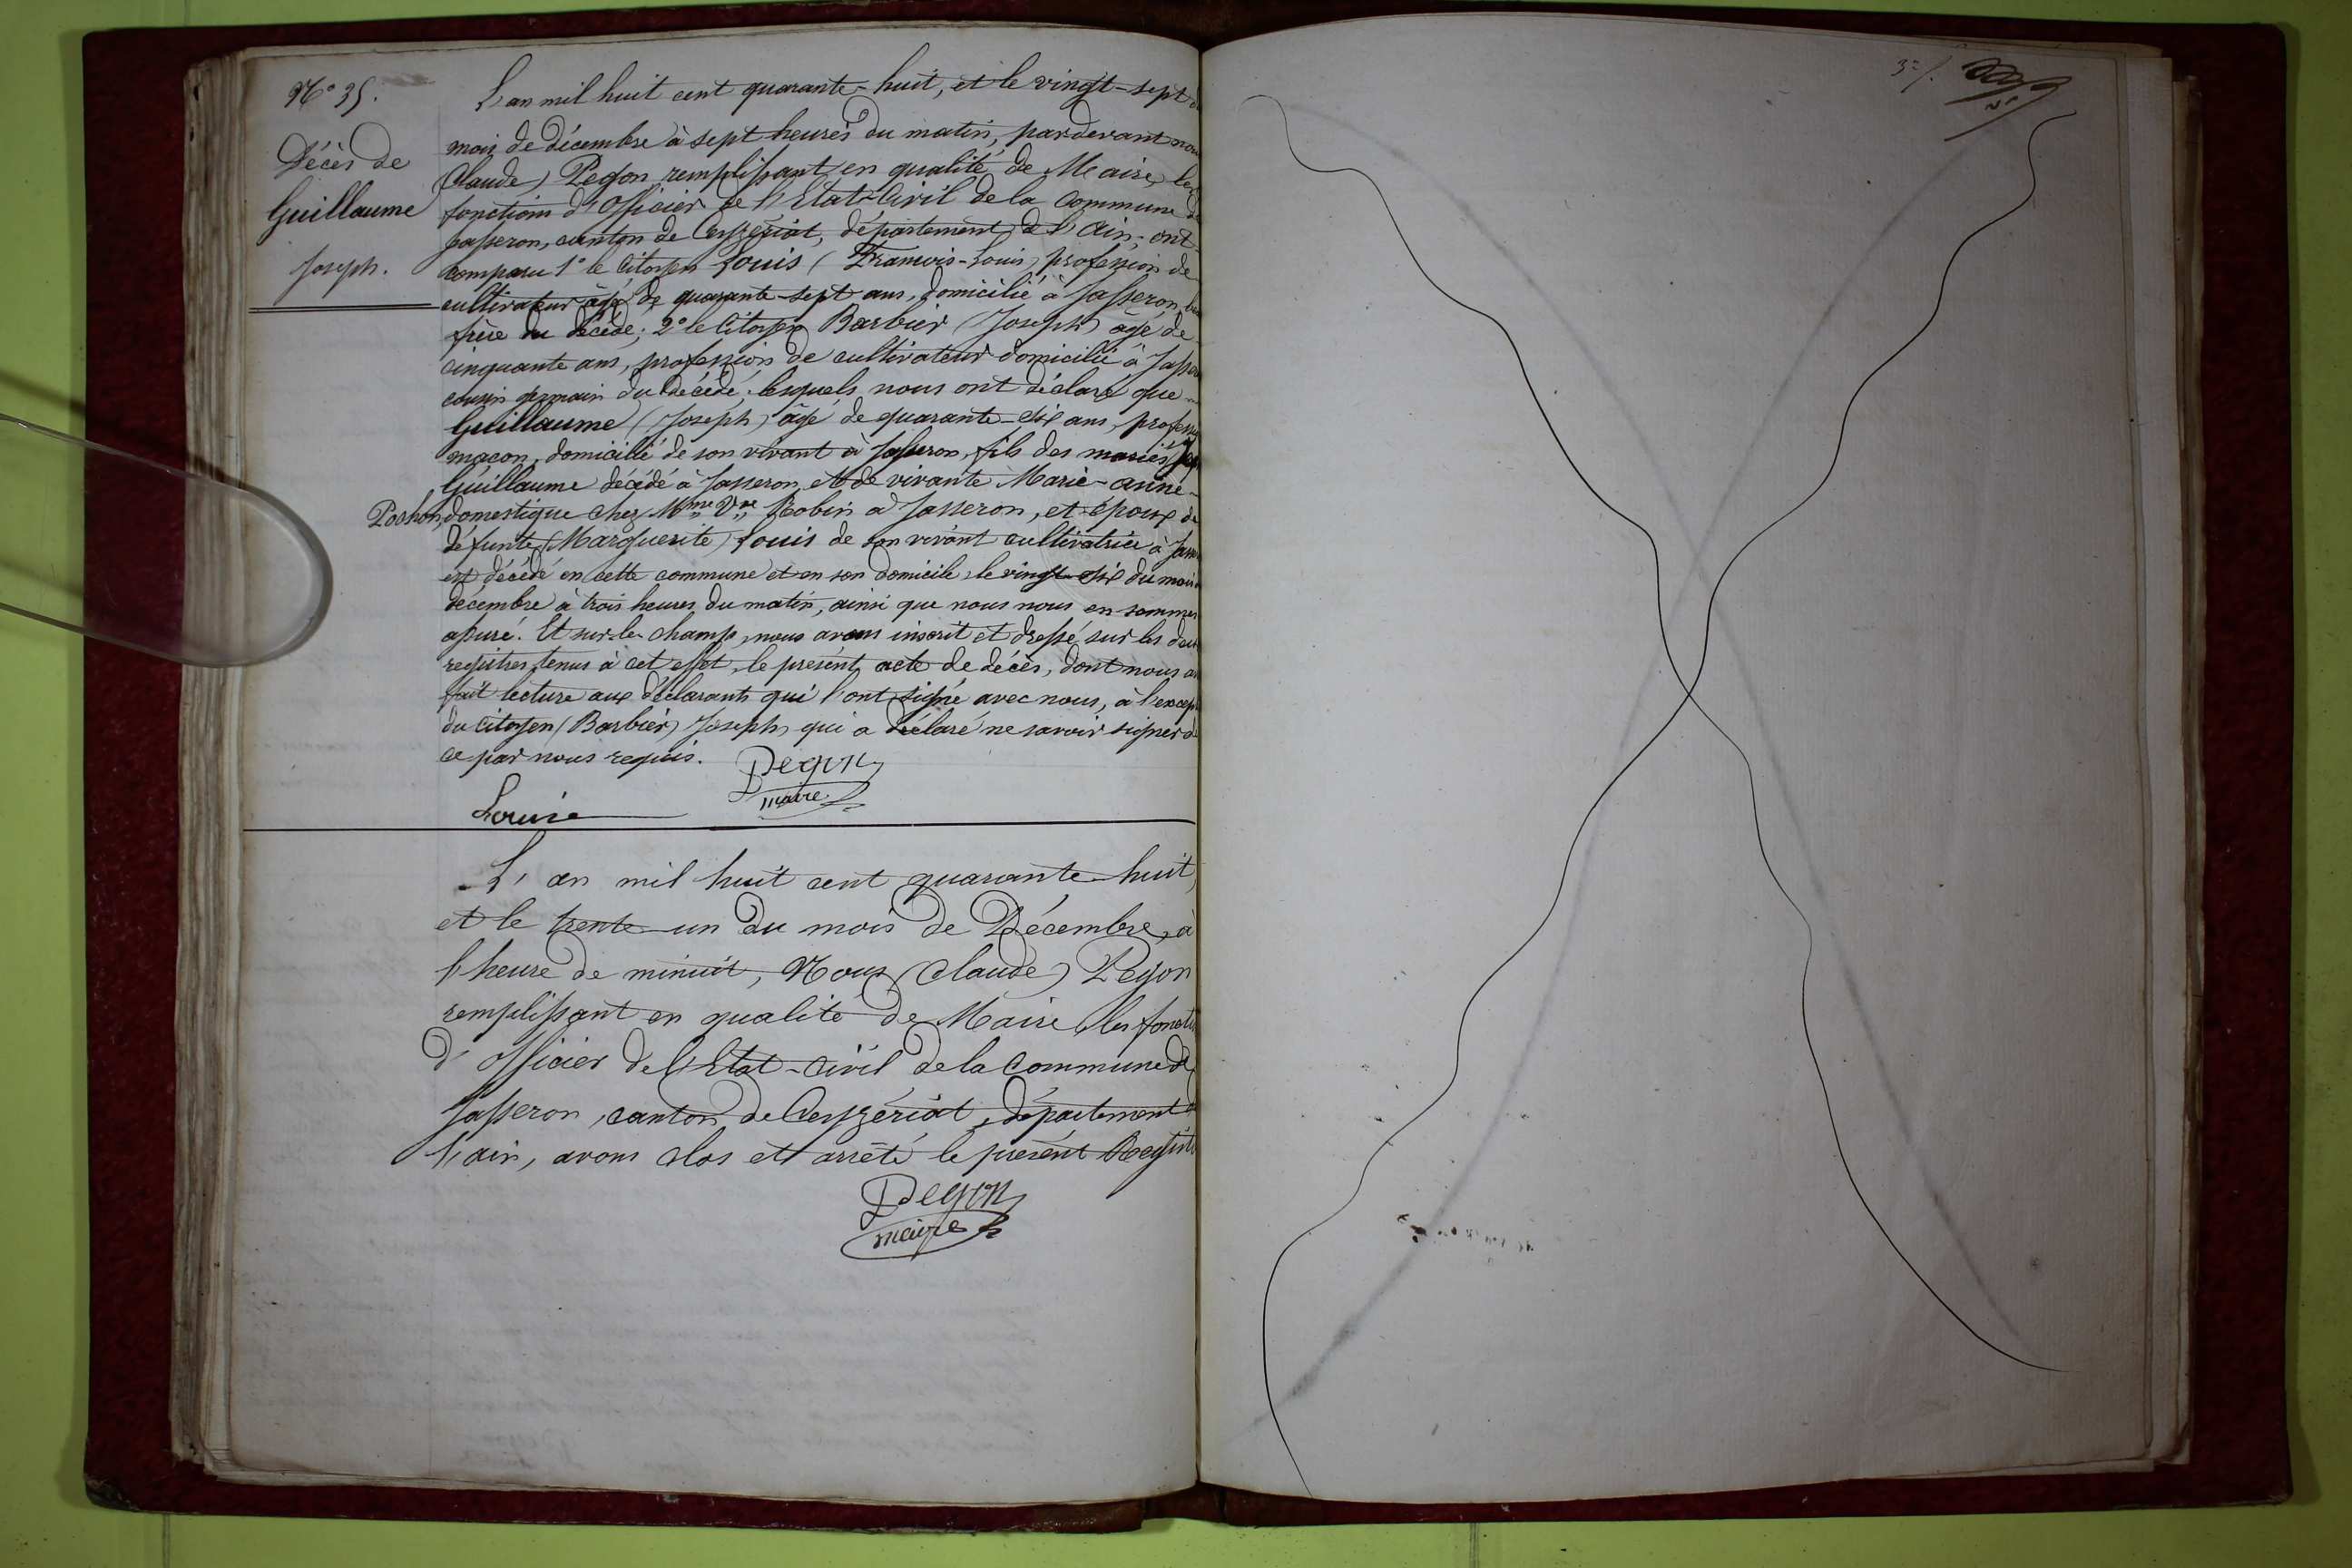 N° 35.
Décès de
Guillaume
Joseph.
L'an mil huit cent quarante-huit, et le vingt-sept du
mois de décembre à sept heures du matin, pardevant nous
(Claude) Pegon remplissant en qualité de Maire, les
fonctions d'Officier de l'Etat-Civil de la Commune de
Jasseron, canton de Ceyzériat, département de l'Ain, ont
comparu 1° le Citoyen Louis (François-Louis) profession de
cultivateur âgé de quarante-sept ans, domicilié à Jasseron,
frère du décédé; 2° le Citoyen Barbier (Joseph) âgé de
cinquante ans, profession de cultivateur domicilié à Jasseron
cousin germain du décédé; lesquels nous ont déclaré que
Guillaume (Joseph) âgé de quarante-six ans, profession
maçon, domicilié de son vivant à Jasseron, fils des mariés
Guillaume décédé à Jasseron, et de vivante Marie-anne
Pochon, domestique chez Mme Vve Robin à Jasseron, et époux de
défunte (Marguerite) Louis de son vivant cultivatrice à Jasseron
est décédé en cette commune et en son domicile, le vingt-six du mois de
décembre à trois heures du matin, ainsi que nous nous en sommes
assuré. Et sur-le-champ, nous avons inscrit et dressé, sur les deux
registres tenus à cet effet, le présent acte de décès, dont nous av
fait lecture aux déclarants qui l'ont signé avec nous, à l'except
du Citoyen (Barbier) Joseph, qui a déclaré ne savoir signer de
ce par nous requis.
Pegon
maire
Louis
L'an mil huit cent quarante-huit,
et le trente-un du mois de Décembre, à
l'heure de minuit, Nous (Claude) Pegon
remplissant en qualité de Maire, les foncti
d'Officier de l'Etat-civil de la Commune de
Jasseron, canton de Ceyzériat, département de
l'ain, avons clos et arrêté le présent Registre
Pegon
maire